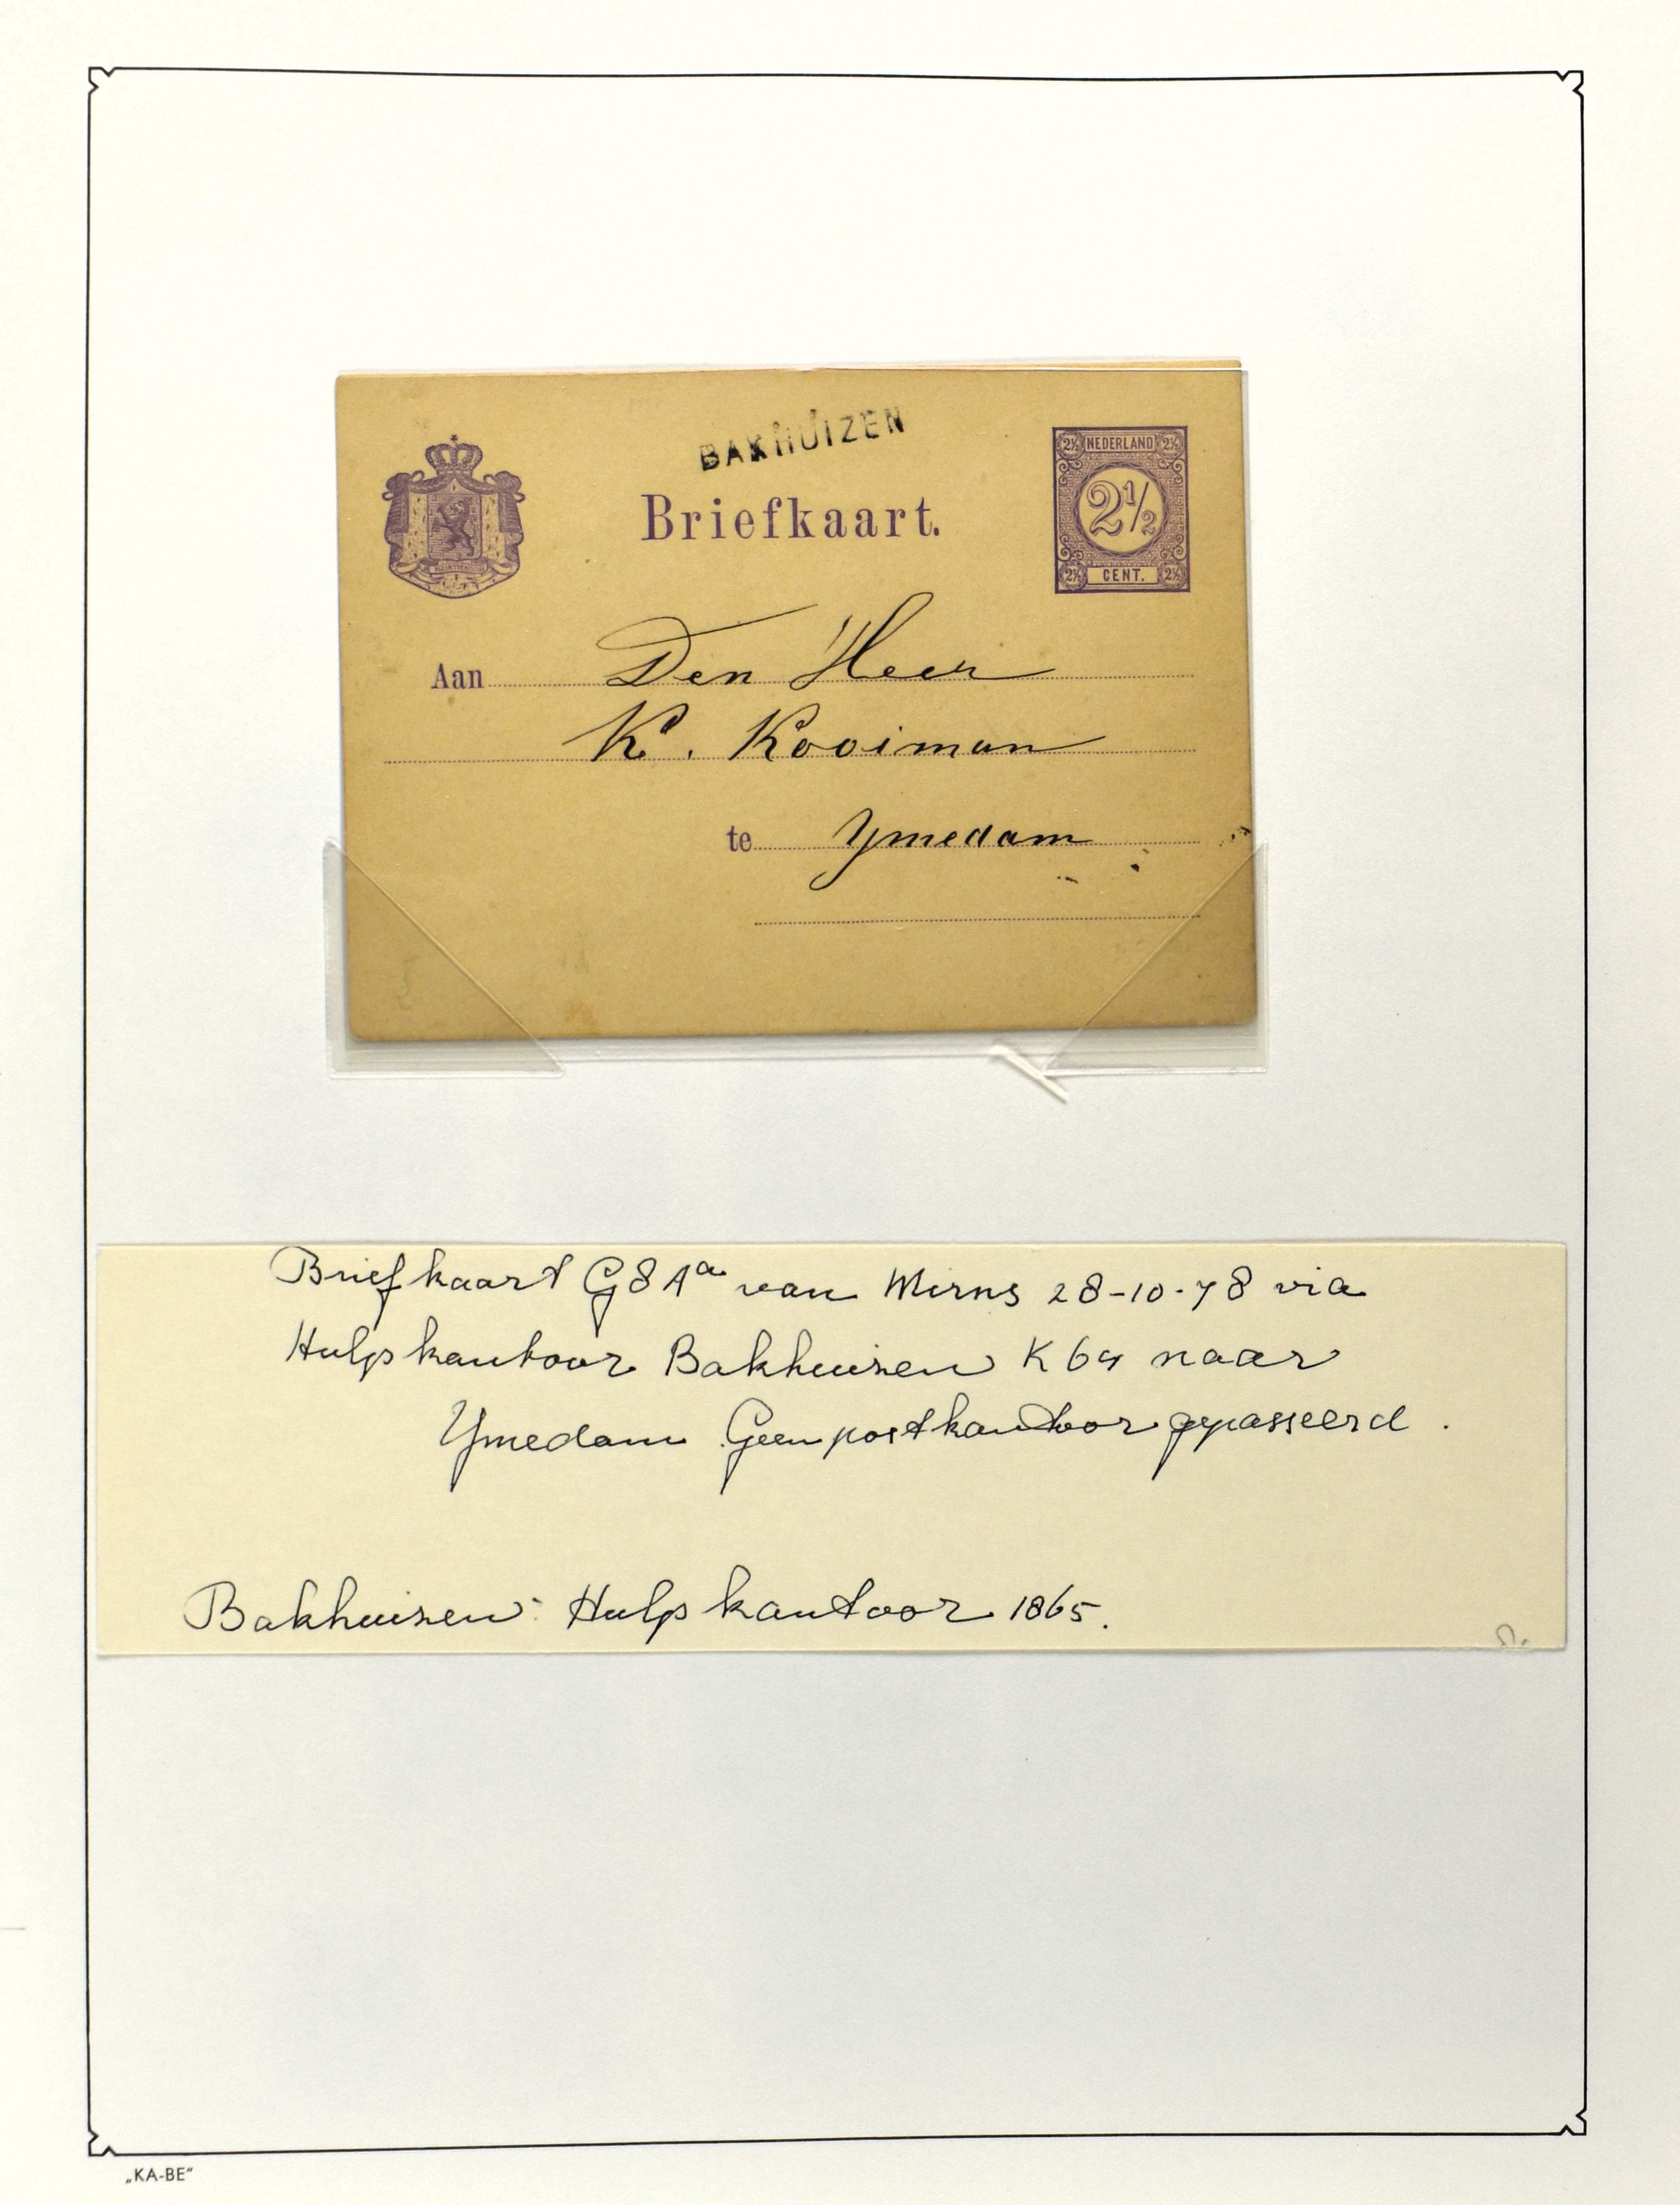 BAKHUIZEN
Briefkaart.
2½ NEDERLAND 2½
2½
2½ CENT. 2½
Aan Den Heer
K. Kooiman
te Ymedam
Briefkaart G8Aa van Mirns 28-10-78 via
Hulpkantoor Bakhuizen K64 naar
Ymedam Geen postkantoor gepasseerd.
Bakhuizen: Hulpkantoor 1865.
„KA-BE“